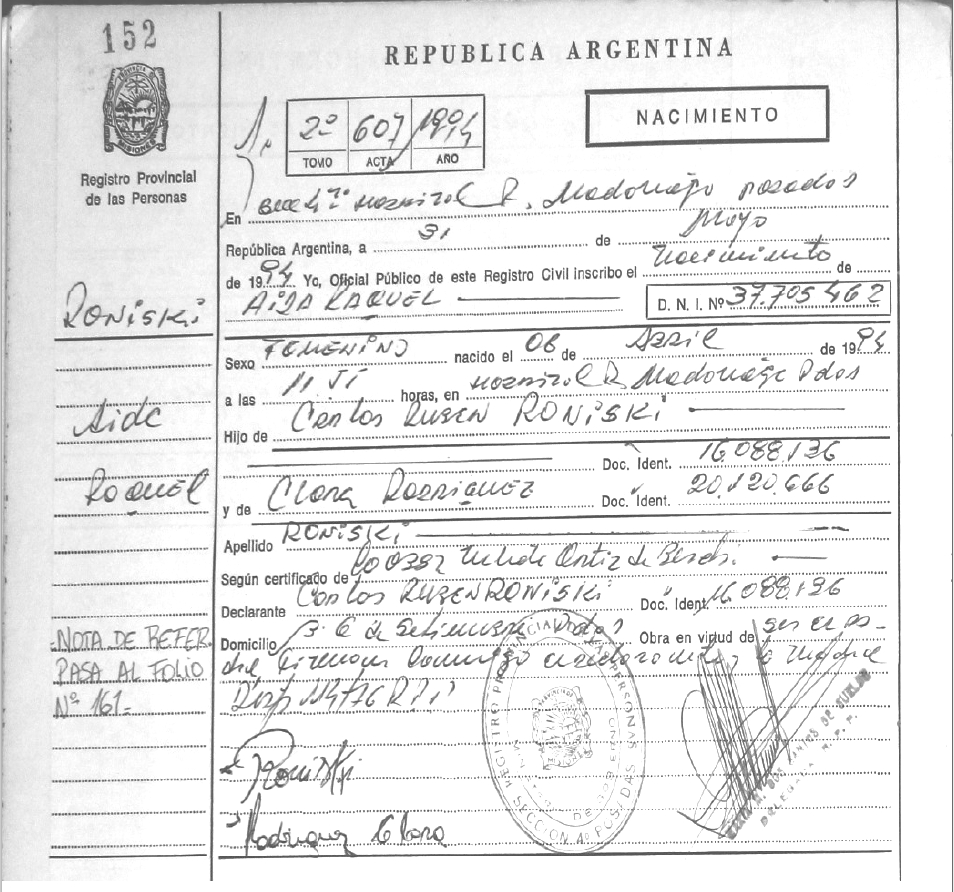 152
REPUBLICA ARGENTINA
PROVINCIA DE MISIONES
Registro Provincial
de las Personas
2º 607 1994
TOMO ACTA AÑO
NACIMIENTO
En R. Madariaga posadas
República Argentina, a 31 de Mayo
de 1994 Yo, Oficial Público de este Registro Civil inscribo el Nacimiento de
AIDA RAQUEL D. N. I. Nº 37.705.462
RONISKI
Sexo FEMENINO nacido el 06 de Abril de 1994
a las 11 horas, en R Madariaga Pdas
Aida
Hijo de Carlos RUBEN RONISKI
Doc. Ident. 16.088.136
Raquel
y de Clara RODRIGUEZ Doc. Ident. 20.120.666
Apellido RONISKI
Según certificado de Ortiz de
Declarante Carlos RUBEN RONISKI Doc. Ident. 16.088.136
Domicilio Pdas Obra en virtud de ser el pa-
dre la Madre
Disp 114/76 R.P.
NOTA DE REFER.
PASA AL FOLIO
Nº 161-
Roniski
Rodriguez Clara
REGISTRO PROVINCIAL DE LAS PERSONAS
SECCION 4ª POSADAS